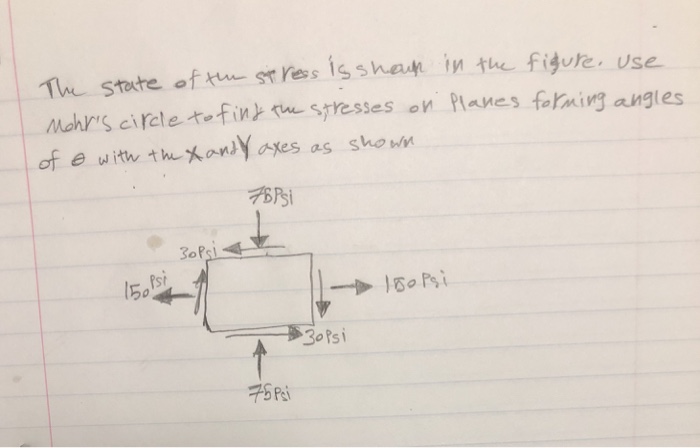 The state of the stress is shown in the figure. Use
Mohr's circle to find the stresses on Planes forming angles
of θ with the X and Y axes as shown
75Psi
30Psi
150Psi
150Psi
30Psi
75Psi